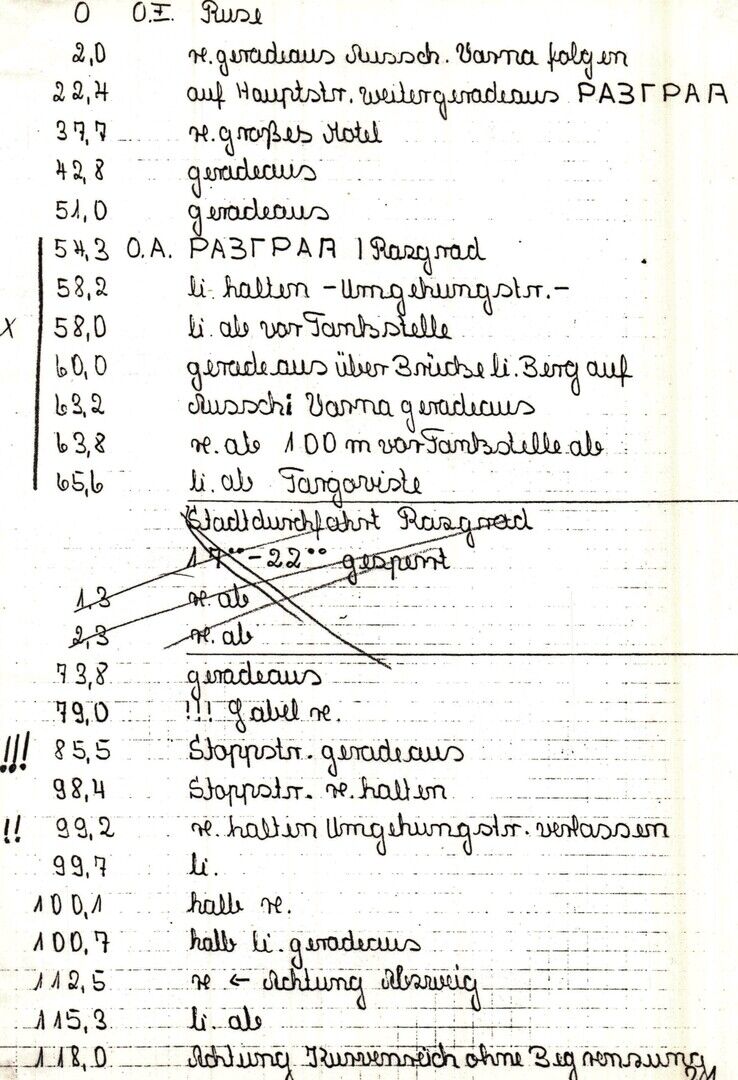 0 O.E. Ruse
2,0 re. geradeaus Russch. Varna folgen
22,4 auf Hauptstr. weiter geradeaus РАЗГРАД
37,7 re. großes Hotel
42,8 geradeaus
51,0 geradeaus
54,3 O.A. РАЗГРАД | Razgrad
58,2 li. halten - Umgehungstr. -
x 58,0 li. ab vor Tankstelle
60,0 geradeaus über Brücke li. Berg auf
63,2 Russchi Varna geradeaus
63,8 re. ab 100 m vor Tankstelle ab
65,6 li. ab Targoviste
Stadtdurchfahrt Rasgrad
17°° - 22°° gesperrt
1,3 re. ab
2,3 re. ab
73,8 geradeaus
79,0 !!! Gabel re.
!!! 85,5 Stoppstr. geradeaus
98,4 Stoppstr. re. halten
!! 99,2 re. halten Umgehungstr. verlassen
99,7 li.
100,1 halb re.
100,7 halb li. geradeaus
112,5 re ← Achtung Abzweig
115,3 li. ab
118,0 Achtung Kurvenreich ohne Begrenzung